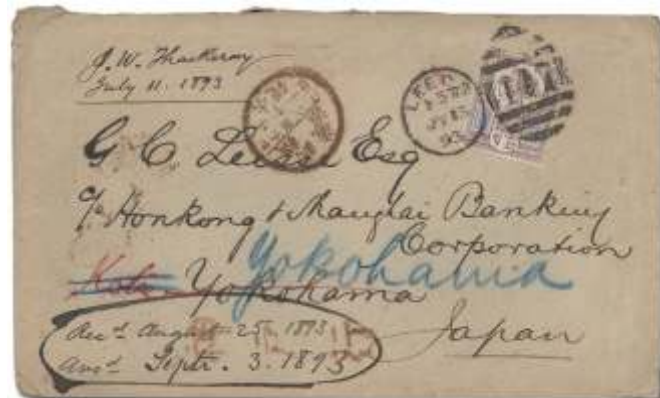 J. W. Thackeray
July 11. 1893
LEEDS
93
G C Esq
c/o Honkong & Shanghai Banking
Corporation
Kobe Yokohama
Yokohama
Japan
Recd August 25 1893
Ansd Septr. 3. 1893